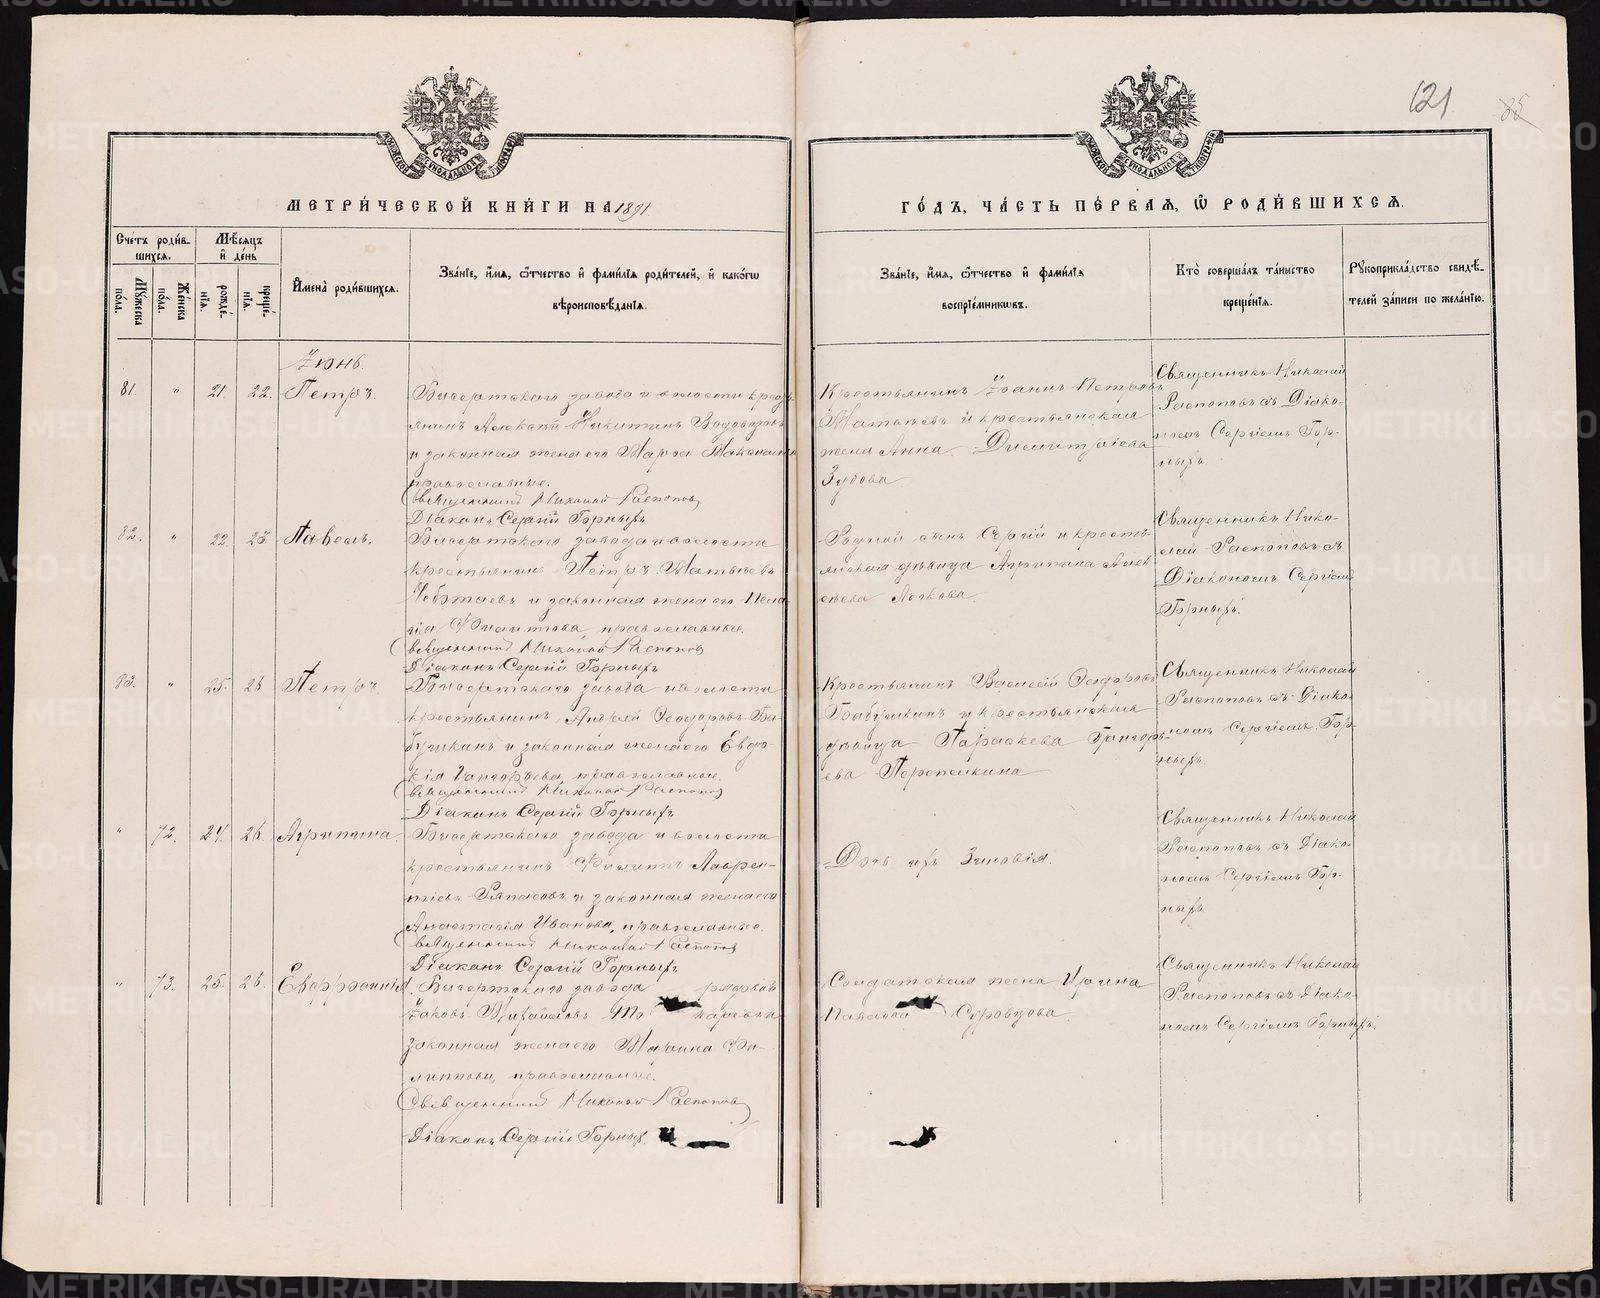 121
35
МЕТРИ́ЧЕСКОЙ КНИ́ГИ НА 1891
ГО́ДЪ, ЧА́СТЬ ПЕ́РВАЯ, Ѡ РОДИ́ВШИХСЯ.
Сче́тъ роди́в-
шихся.
Му́жеска по́ла.
Же́нска по́ла.
Мѣ́сяцъ
и де́нь
рожде́-
нїя.
креще́-
нїя.
Имена̀ роди́вшихся.
Зва́нїе, и́мя, ѻ́тчество и фами́лїя роди́телей, и како́гѡ
вѣроисповѣ́данїя.
Зва́нїе, и́мя, ѻ́тчество и фами́лїя
воспрїе́мникѡвъ.
Кто̀ соверша́лъ та́инство
креще́нїя.
Рꙋкоприкла́дство свидѣ́-
телей за́писи по жела́нїю.
Іюнь.
81. " 21. 22. Петръ.
Бисертскаго завода и волости крест-
янинъ Алексѣй Никитинъ Водовозовъ
и законная жена его Марѳа Максимова
православные.
Священникъ Николай Распоповъ
Діаконъ Сергій Горныхъ
Крестьянинъ Іоаннъ Петровъ
Матвѣевъ и крестьянская
жена Анна Димитріева
Зубова
Священникъ Николай
Распоповъ съ Діако-
номъ Сергіемъ Гор-
ныхъ.
82. " 22. 23. Павелъ.
Бисертскаго завода и волости
крестьянинъ Петръ Матвѣевъ
и законная жена его Пела-
гія православные.
Священникъ Николай Распоповъ
Діаконъ Сергій Горныхъ
Родной сынъ Сергій и кресть-
янская дѣвица Агрипина Алек-
сѣева
Священникъ Нико-
лай Распоповъ съ
Діакономъ Сергіемъ
Горныхъ.
83. " 25. 26 Петръ.
Бисертскаго завода и волости
крестьянинъ Андрей Ѳеодоровъ Ба-
бушкинъ и законная жена его Евдо-
кія Григорьева, православные.
Священникъ Николай Распоповъ
Діаконъ Сергій Горныхъ
Крестьянинъ Василій Ѳедоровъ
Бабушкинъ и крестьянская
дѣвица Параскева Григорь-
ева Перепелкина
Священникъ Николай
Распоповъ съ Діако-
номъ Сергіемъ Гор-
ныхъ.
" 72. 24. 26 Агрипина.
Бисертскаго завода и волости
крестьянинъ Филиппъ Лаврен-
тіевъ и законная жена его
Анастасія Иванова, православные.
Священникъ Николай Распоповъ
Діаконъ Сергій Горныхъ
Дочь ихъ Зиновія.
Священникъ Николай
Распоповъ съ Діако-
номъ Сергіемъ Гор-
ныхъ
" 73. 25. 26. Евфросинія.
Бисертскаго завода рядовой
Іаковъ Михайловъ
законная жена его Марина Фи-
липпова, православные.
Священникъ Николай Распоповъ
Діаконъ Сергій Горныхъ.
Солдатская жена Ирина
Павлова Суровцова.
Священникъ Николай
Распоповъ съ Діако-
номъ Сергіемъ Горныхъ.